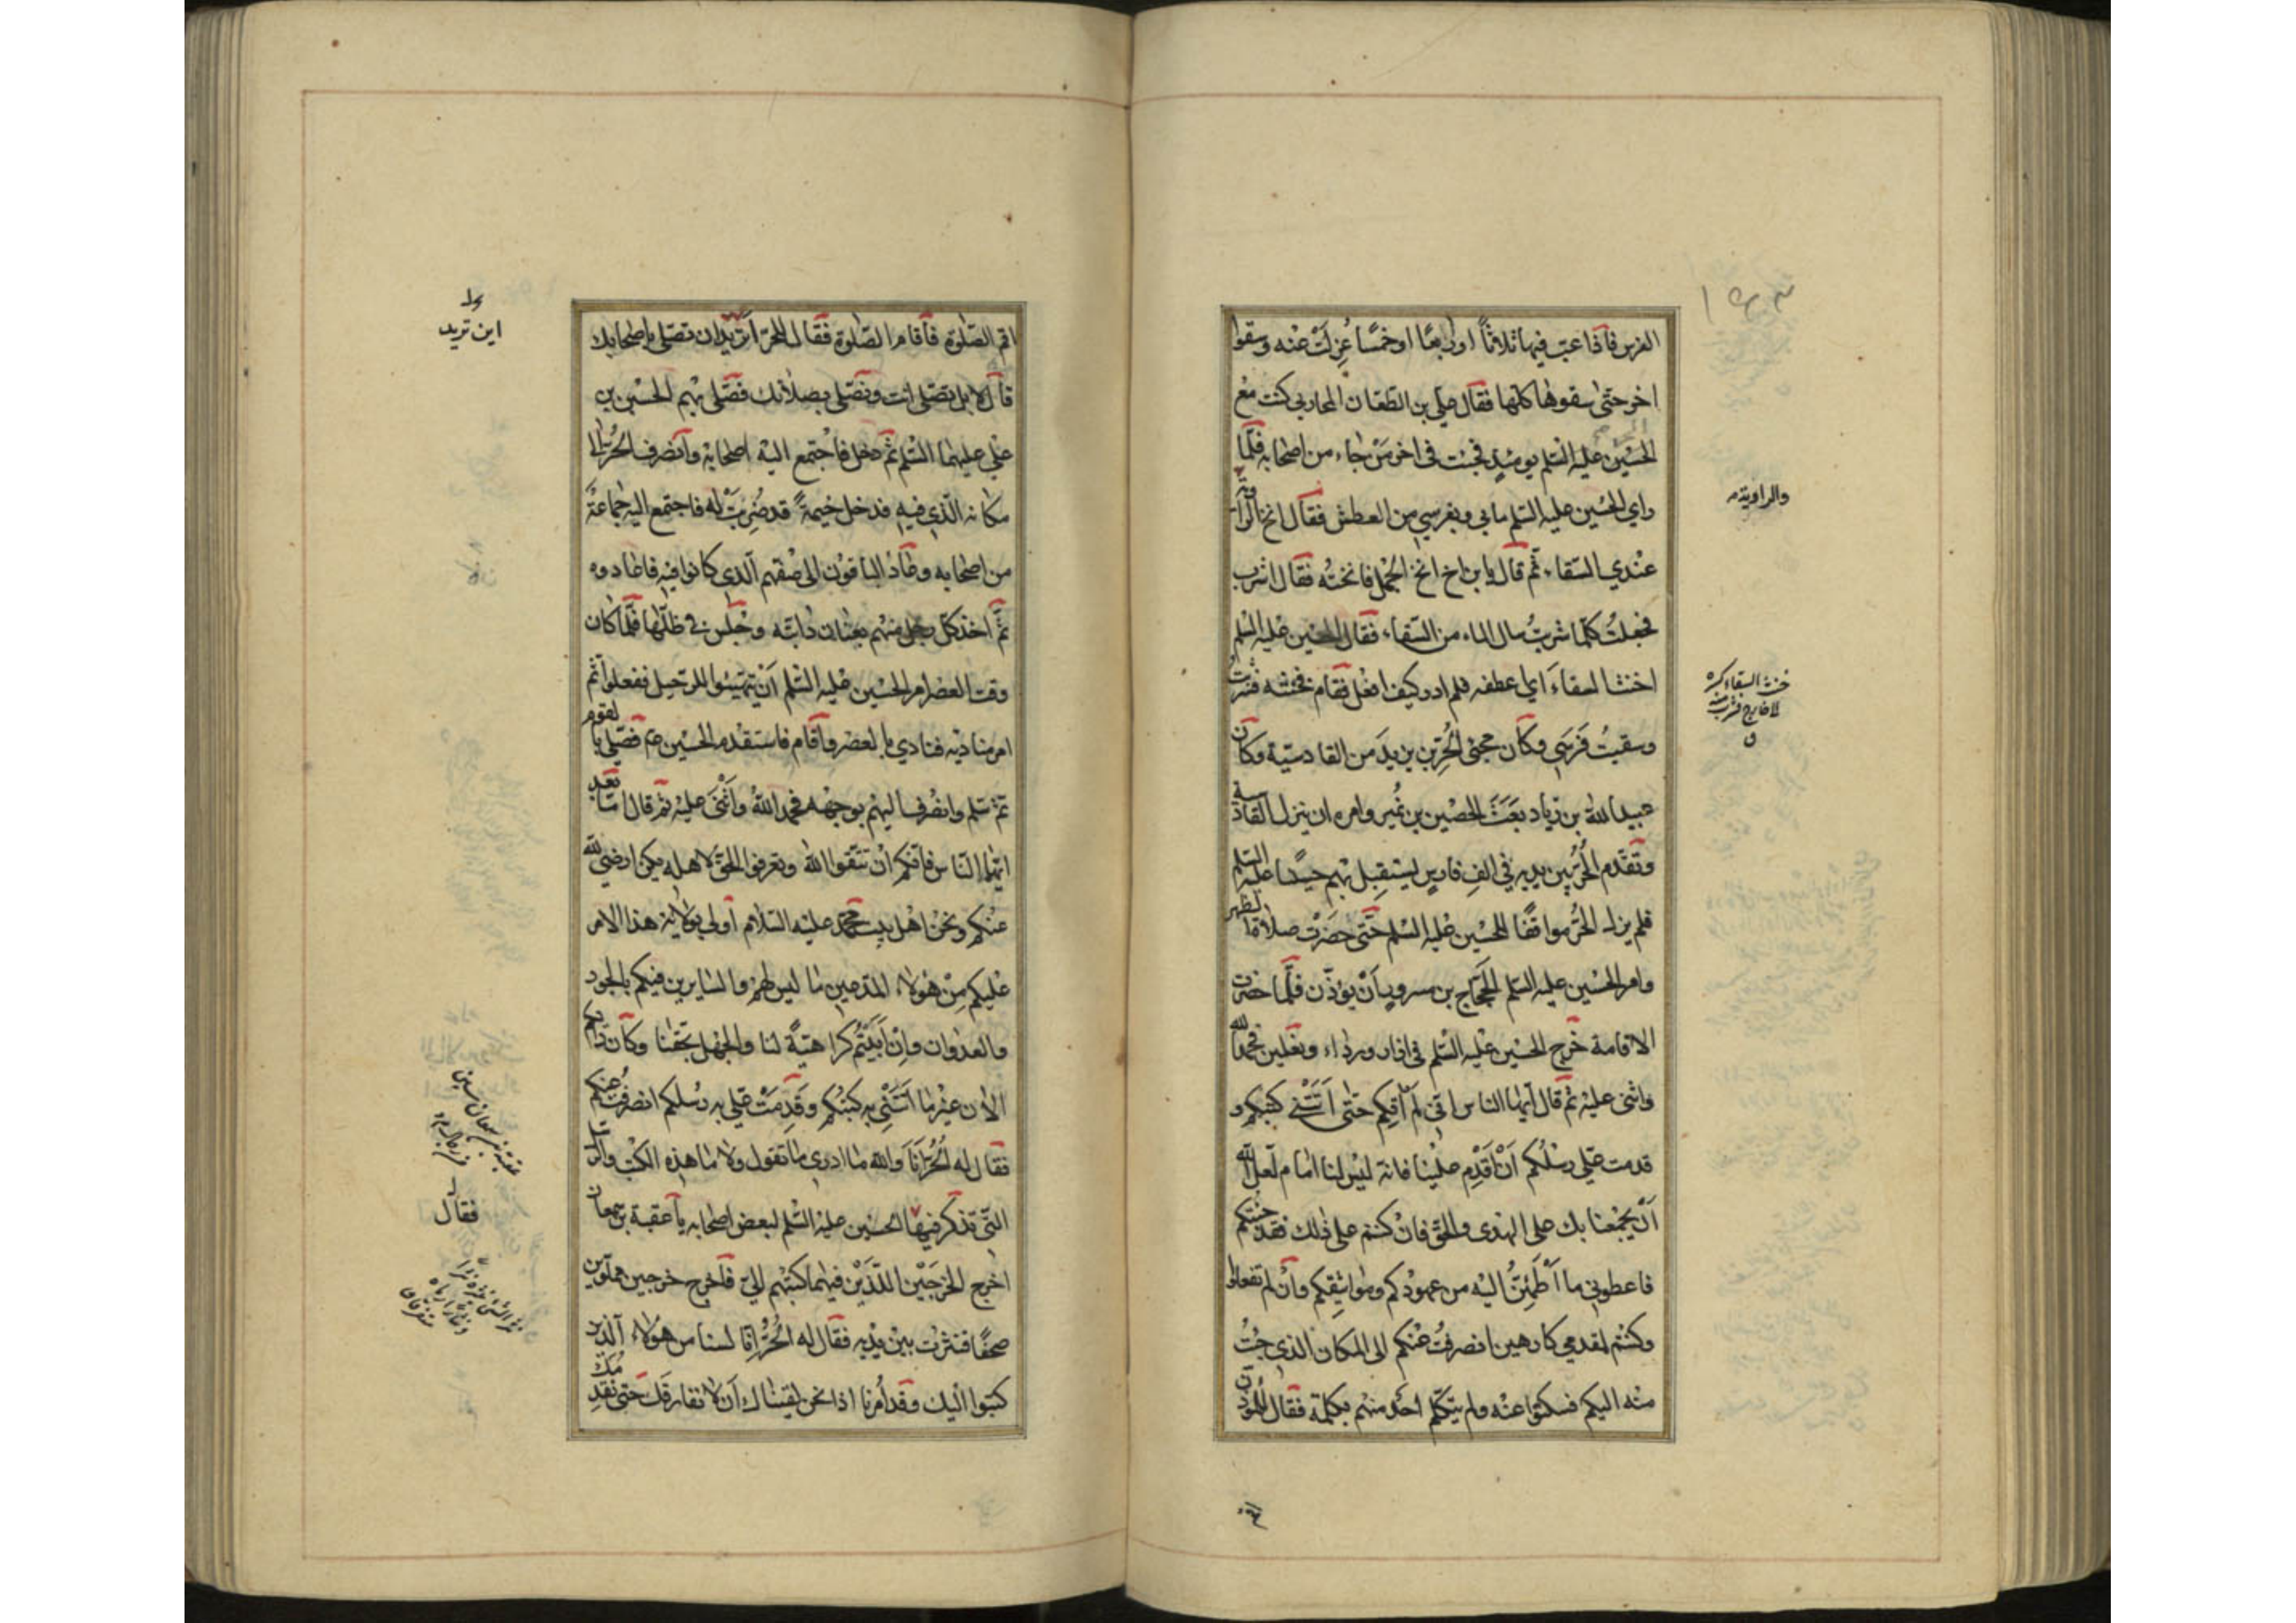 الفرس فاذا عب فيها ثلاثاً او اربعًا او خمسًا عُزِلَتْ عنْه وسقوا
اخر حتّى سقوها كلها فقال علي بن الطعان المحاربي كنت مع
الحسَيْن عليه السّلم يومئذٍ فجئت في اخر مَنْ جاء من اصحابه فلّما
راي الحسَين عليه السّلم ما بي وبفرسي من العطش فقال انخ الراوية
عنْدي السّقاء ثم قال يا بن اخ انخ الجمل فانختُه فقال اشرب
فجعلتُ كلّما شربتُ سال الماء من السّقاء فقال الحسَين عليه السّلم
اخنث السقاءَ اي اعطفه فلم ادر كيف افعل فقام فخنثه فشربْتُ
وسقيتُ فَرَسي وكان مجئ الحُرّ بن يزيدَ من القادسيّة وكان
عبيد الله بن زياد بَعَثَ الحصْين بن نُمير وامره ان ينزل القادسية
وتقدّم الحُرّ بين يديه في الفِ فارسٍ ليستقبل بهم حسينًا عليه السّلم
فلم يزل الحُرّ موافقًا للحسَين عليه السّلم حتّى حضَرْت صلاة الظهر
وامر الحسَين عليه السّلم الحَجّاج بن مسروق اَنْ يؤذّن فلّما حضرت
الاقامة خرج الحسَين عليه السّلم في ازار ورداء ونعْلين فحمد الله
واثنى عليْه ثمّ قال ايّها الناس انّي لم اتكم حتّى اَتَتْني كتبكم و
قدمت علي رسُلُكم اَنْ اَقْدِم علينْا فانه ليْس لنا امام لعل الله
اَنْ يجْمعَنا بك على الهدى والحقّ فانْ كنتم على ذلك فقد جئتكم
فاعطوني ما اَطْمَئِنُّ اليْه من عهودكم ومواثيقكم وانْ لم تفعلوا
وكنتُم لمقدمي كارهين انصرفتُ عنْكم الى المكان الذي جئتُ
منْه اليكم فسكتوا عنْه ولم يتكلّم احَد منهم بكلمة فقال للمؤذن
والراوية
خنث السقاء كسره
الى خارج فشرب منه
ق
اقم الصّلوة فاَقام الصّلوة فقال للحرّ اَتريْد ان تصّلي باصحابك
قال لا بل تصّلي انت ونصّلي بصلاتك فصّلى بهم الحسَين بن
علي عليهما السّلم ثمّ دخل فاجْتمع اليْه اصحابه وانصرف الحُرّ الى
مكانه الّذي فيه فدخل خيمةً قد ضُرِبَتْ له فاجتمع اليه جماعةٌ
من اصحابه وعاد الباقون الى صفهم الّذي كانوا فيه فاعادوه
ثّم اخذ كلّ رجل منهم بعنان دابّته وجلس في ظلّها فلّما كان
وقت العصر امر الحسَين عليه السّلم اَنْ يتهيّئوا للرّحيل ففعلوا ثمّ
امر مناديه فنادي بالعصْر واَقام فاستقدم الحسين ع فصّلى بالقوم
ثم سلم وانصْرف اليهم بوجهْه فحمد الله واَثْنى عليه ثم قال امّا بعد
ايّها النّاس فانّكم اَنْ تتّقوا الله وتعرفوا الحقّ لاهله يكن ارضي لله
عنْكم ونحن اهْل بيت محمّد عليه السّلام اولي بولاية هذا الامر
عليْكم مِنْ هؤلاء المدّعين ما ليس لهم والسّايرين فيكم بالجور
والعدْوان واِنْ اَبَيْتُم كراهيّةً لنا والجهْل بحقّنا وكان رايكم
الان غيْر ما اَتَتْني به كتبُكم وقَدِمَتْ علي به رسُلكم انصرفت عنكم
فقال له الحُرّ اَنَا والله ما ادري ما تقول ولا ما هذه الكتب والرسل
التّي تذكر فيها الحسَين عليه السّلم لبعض اصحابه يا عقبة بن سمعان
اخرج الخرجَيْن اللّذَيْن فيهما كتبُهم اليّ فاخرج خرجين مملوّين
صحفًا فنثرت بيْن يدْيه فقال له الحُرّ اِنّا لسنا من هؤلاء الّذين
كتبوا اليْك وقد اُمرنا اذا نحن لقيناك اَنْ لا نفارقك حتى نقدمك
اين تريد
عقبة بن سمعان
فقال